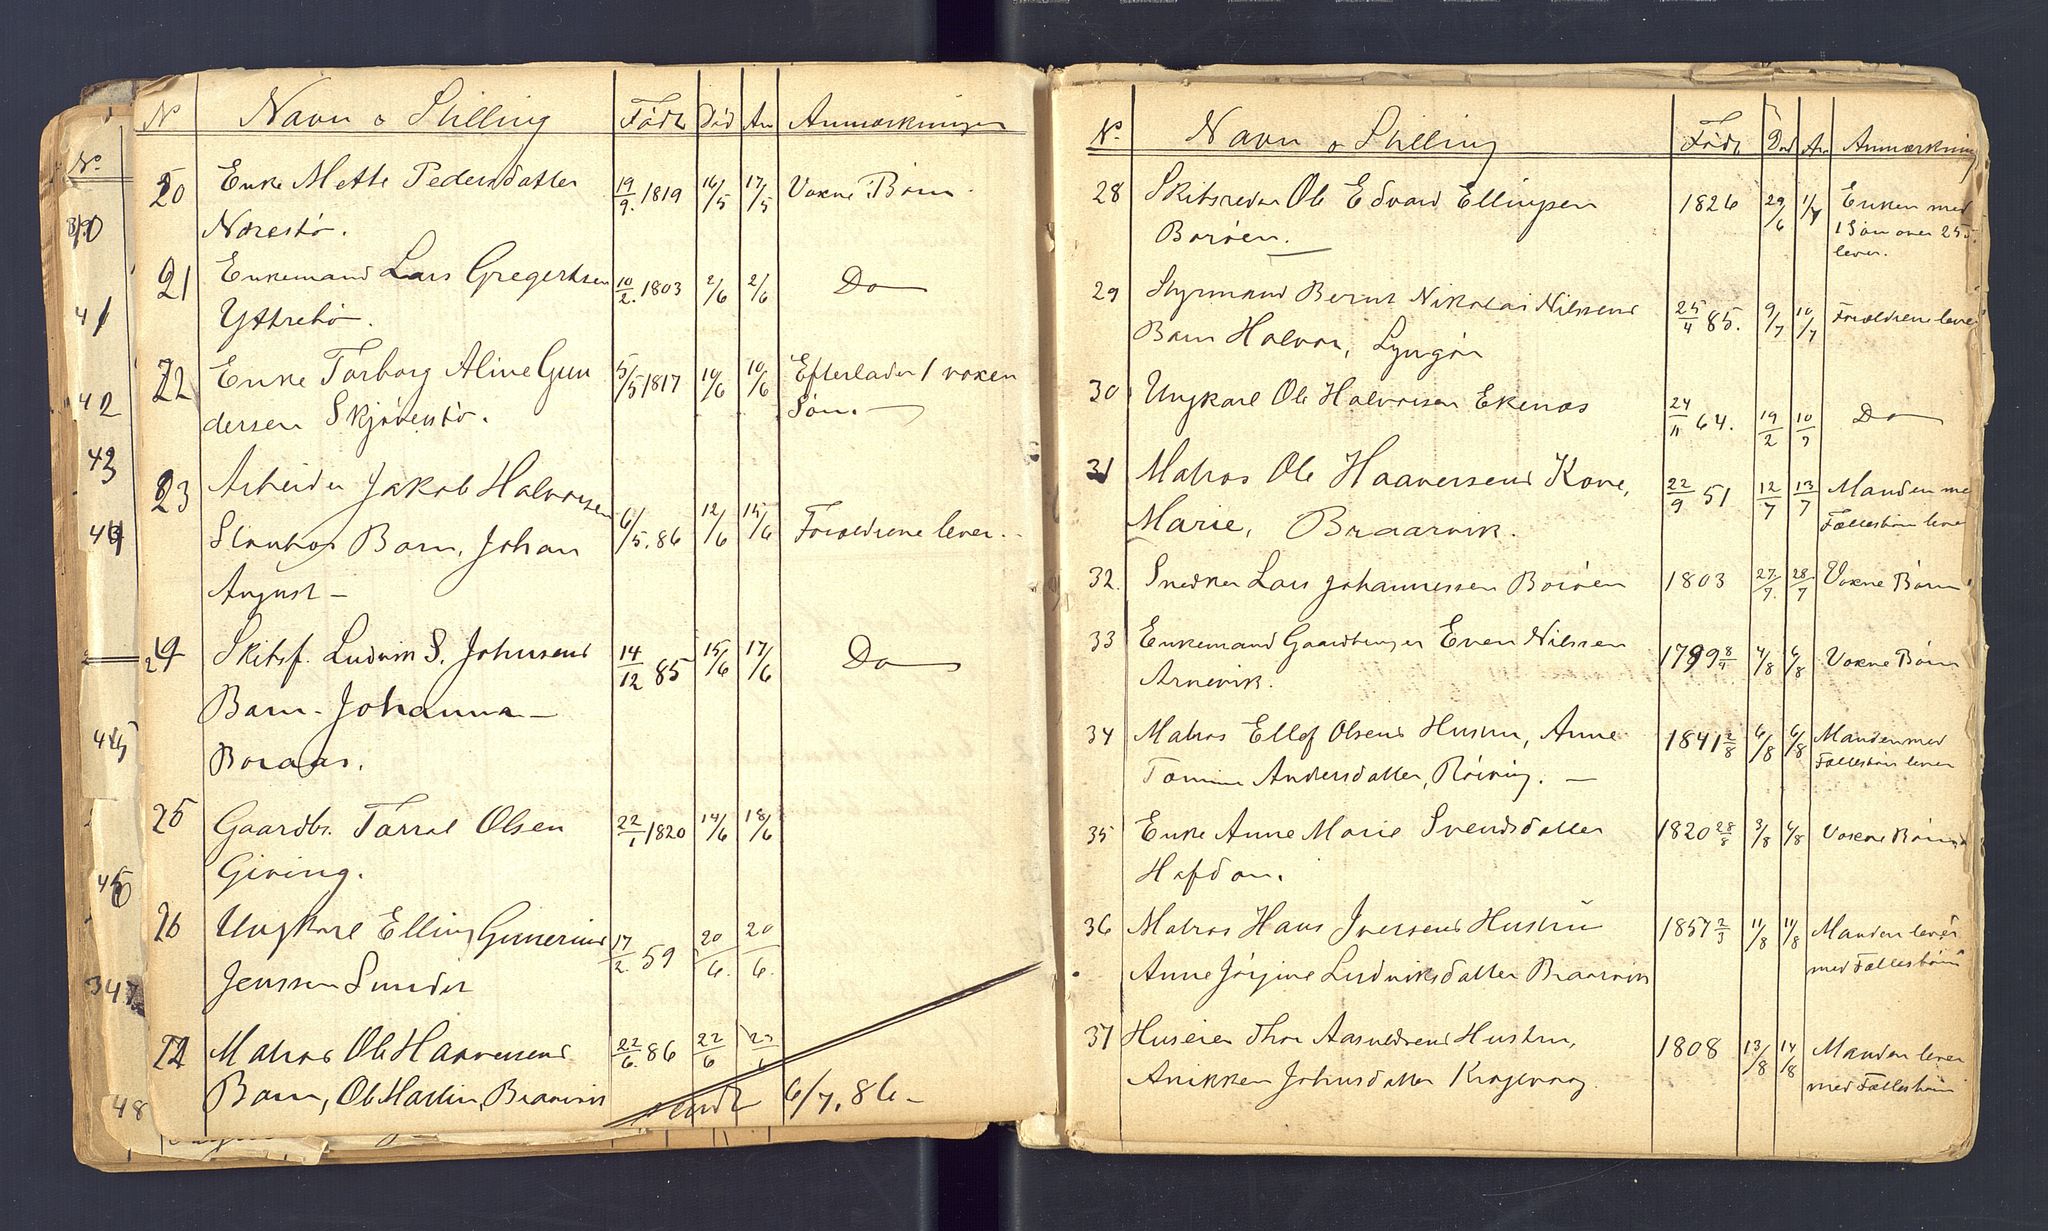 No Navn o Stilling Födt Död An Anmærkninger
20 Enke Mette Pedersdatter 19/9. 1819 16/5 17/5 Voxne Børn
Næsestø.
21 Enkemand Lars Gregertsen 10/2. 1803 2/6 2/6 Do
Yttrebø.
22 Enke Torborg Aline Gun 5/5 1817 10/6 10/6 Efterlader 1 voxen
dersen Skjörestö. Søn. —
23 Arbeider Jakob Halvorsen
Barn, Johan 6/5. 86 12/6 15/6 Forældrene lever. -
August —
24 Skibsf. Ludvik S. Johnsens 14/12 85 15/6 17/6 Do
Barn - Johanna —
Boraas.
25 Gaardbr. Tarral Olsen 22/1 1820 14/6 18/6
Giving.
26 Ungkarl Elling Gunerius 17/2. 59 20/6. 20/6.
Jenssen Sundet
27 Matros Ole Haaversens 22/6. 86 22/6 23/6
Barn, Ole Martin, Braarvik sendt 6/7. 86 -
No
40
41
42
43
44
45
46
347
48
No. Navn o Stilling Födt Död An Anmærkning
28 Skibsreder Ole Edvard Ellingsen 1826 29/6 1/7 Enken med
Borøen. 1 Søn over 25
lever.
29 Styrmand Bernt Nikolai Nilssens 25/4 85. 9/7 10/7 Forældrene lever
Barn Halvor, Lyngör
30 Ungkarl Ole Halvorsen Ekenæs 24/11 64. 19/2 10/7 Do
31 Matros Ole Haaversens Kone, 22/9 51 12/7 13/7 Manden med
Marie, Braarvik. Fællesbørn lever
32. Snedker Lars Johannessen Borøen 1803 27/7. 28/7 Voxne Børn
33 Enkemand Gaardbruger Even Nilssen 1799 8/9 4/8 6/8 Voxne Børn
Arnevik.
34 Matros Ellef Olsens Hustru, Anne 1841 2/8 6/8 6/8 Manden med
Tomine Andersdatter, Röiving. — Fællesbørn lever
35 Enke Anne Marie Svendsdatter 1820 28/8 3/8 6/8 Voxne Børn
Hafdan.
36 Matros Hans Iversens Hustru 1857 2/3 11/8 11/8 Manden lever
Anne Jörgine Ludviksdatter Braarvik med Fællesbørn
37 Huseier Thor Aasuldsens Hustru, 1808 13/8 14/8 Manden lever
Anikken Johnsdatter Krogevaag med Fællesbørn